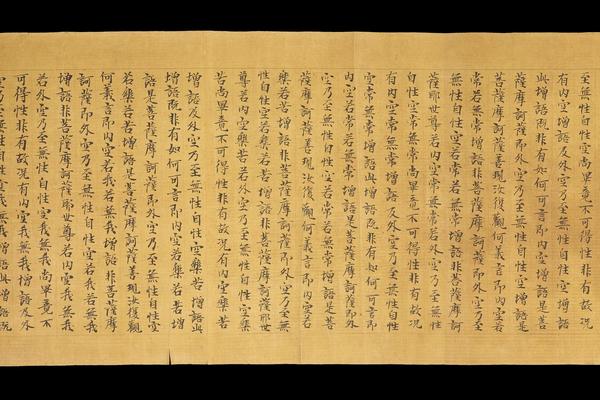 至無性自性空尚畢竟不可得性非有故況
有內空增語及外空乃至無性自性空增語
此增語既非有如何可言即內空增語是菩
薩摩訶薩即外空乃至無性自性空增語是
菩薩摩訶薩善現汝復觀何義言即內空若
常若無常增語非菩薩摩訶薩即外空乃至
無性自性空若常若無常增語非菩薩摩訶
薩耶世尊若內空常無常若外空乃至無性
自性空常無常尚畢竟不可得性非有故況
有內空常無常增語及外空乃至無性自性
空常無常增語此增語既非有如何可言即
內空若常若無常增語是菩薩摩訶薩即外
空乃至無性自性空若常若無常增語是菩
薩摩訶薩善現汝復觀何義言即內空若
樂若苦增語非菩薩摩訶薩即外空乃至無
性自性空若樂若苦增語非菩薩摩訶薩耶世
尊若內空樂苦若外空乃至無性自性空樂
苦尚畢竟不可得性非有故況有內空樂苦
增語及外空乃至無性自性空樂苦增語此
增語既非有如何可言即內空若樂若苦增
語是菩薩摩訶薩即外空乃至無性自性空
若樂若苦增語是菩薩摩訶薩善現汝復觀
何義言即內空若我若無我增語非菩薩摩
訶薩即外空乃至無性自性空若我若無我
增語非菩薩摩訶薩耶世尊若內空我無我
若外空乃至無性自性空我無我尚畢竟不
可得性非有故況有內空我無我增語及外
空乃至無性自性空我無我增語此增語既